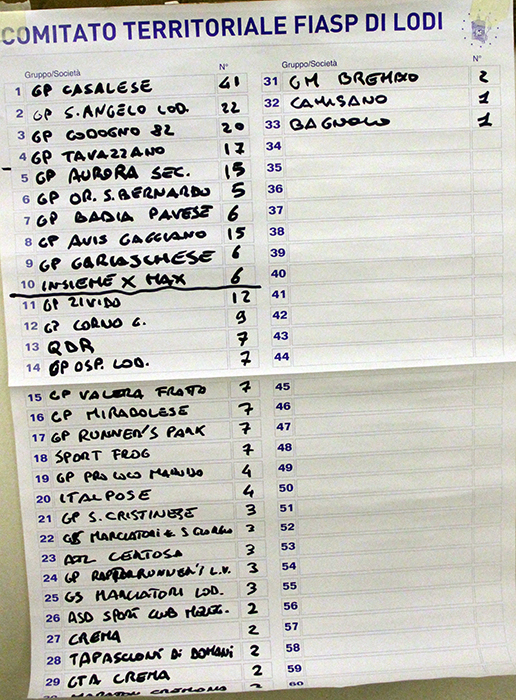 COMITATO TERRITORIALE FIASP DI LODI
Gruppo/Società N°
1 GP CASALESE 41
2 GP S.ANGELO LOD. 22
3 GP CODOGNO 82 20
4 GP TAVAZZANO 17
5 GP AURORA SEC. 15
6 GP OR. S. BERNARDO 5
7 GP BADIA PAVESE 6
8 GP AVIS GAGGIANO 15
9 GP GERIASCHESE 6
10 INSIEME X MAX 6
11 GP ZIVIDO 12
12 GP CORNO G. 9
13 QDR 7
14 GP OSP. LOD. 7
15 GP VALERA FRATTA 7
16 GP MIRADOLESE 7
17 GP RUNNER'S PARK 7
18 SPORT FROG 7
19 GP PRO LOCO MARUDO 4
20 ITALPOSE 4
21 GP S. CRISTINESE 3
22 MARCIATORI S GIORGIO 3
23 ATL CERTOSA 3
24 GP L.V. 3
25 GS MARCIATORI LOD. 3
26 ASD SPORT CLUB MEZEG. 2
27 CREMA 2
28 TAPASCIONI DI DOMANI 2
29 GTA CREMA 2
30 MARATON CREMONA 2
Gruppo/Società N°
31 GM BREMBIO 2
32 CAMISANO 1
33 BAGNOLO 1
34
35
36
37
38
39
40
41
42
43
44
45
46
47
48
49
50
51
52
53
54
55
56
57
58
59
60